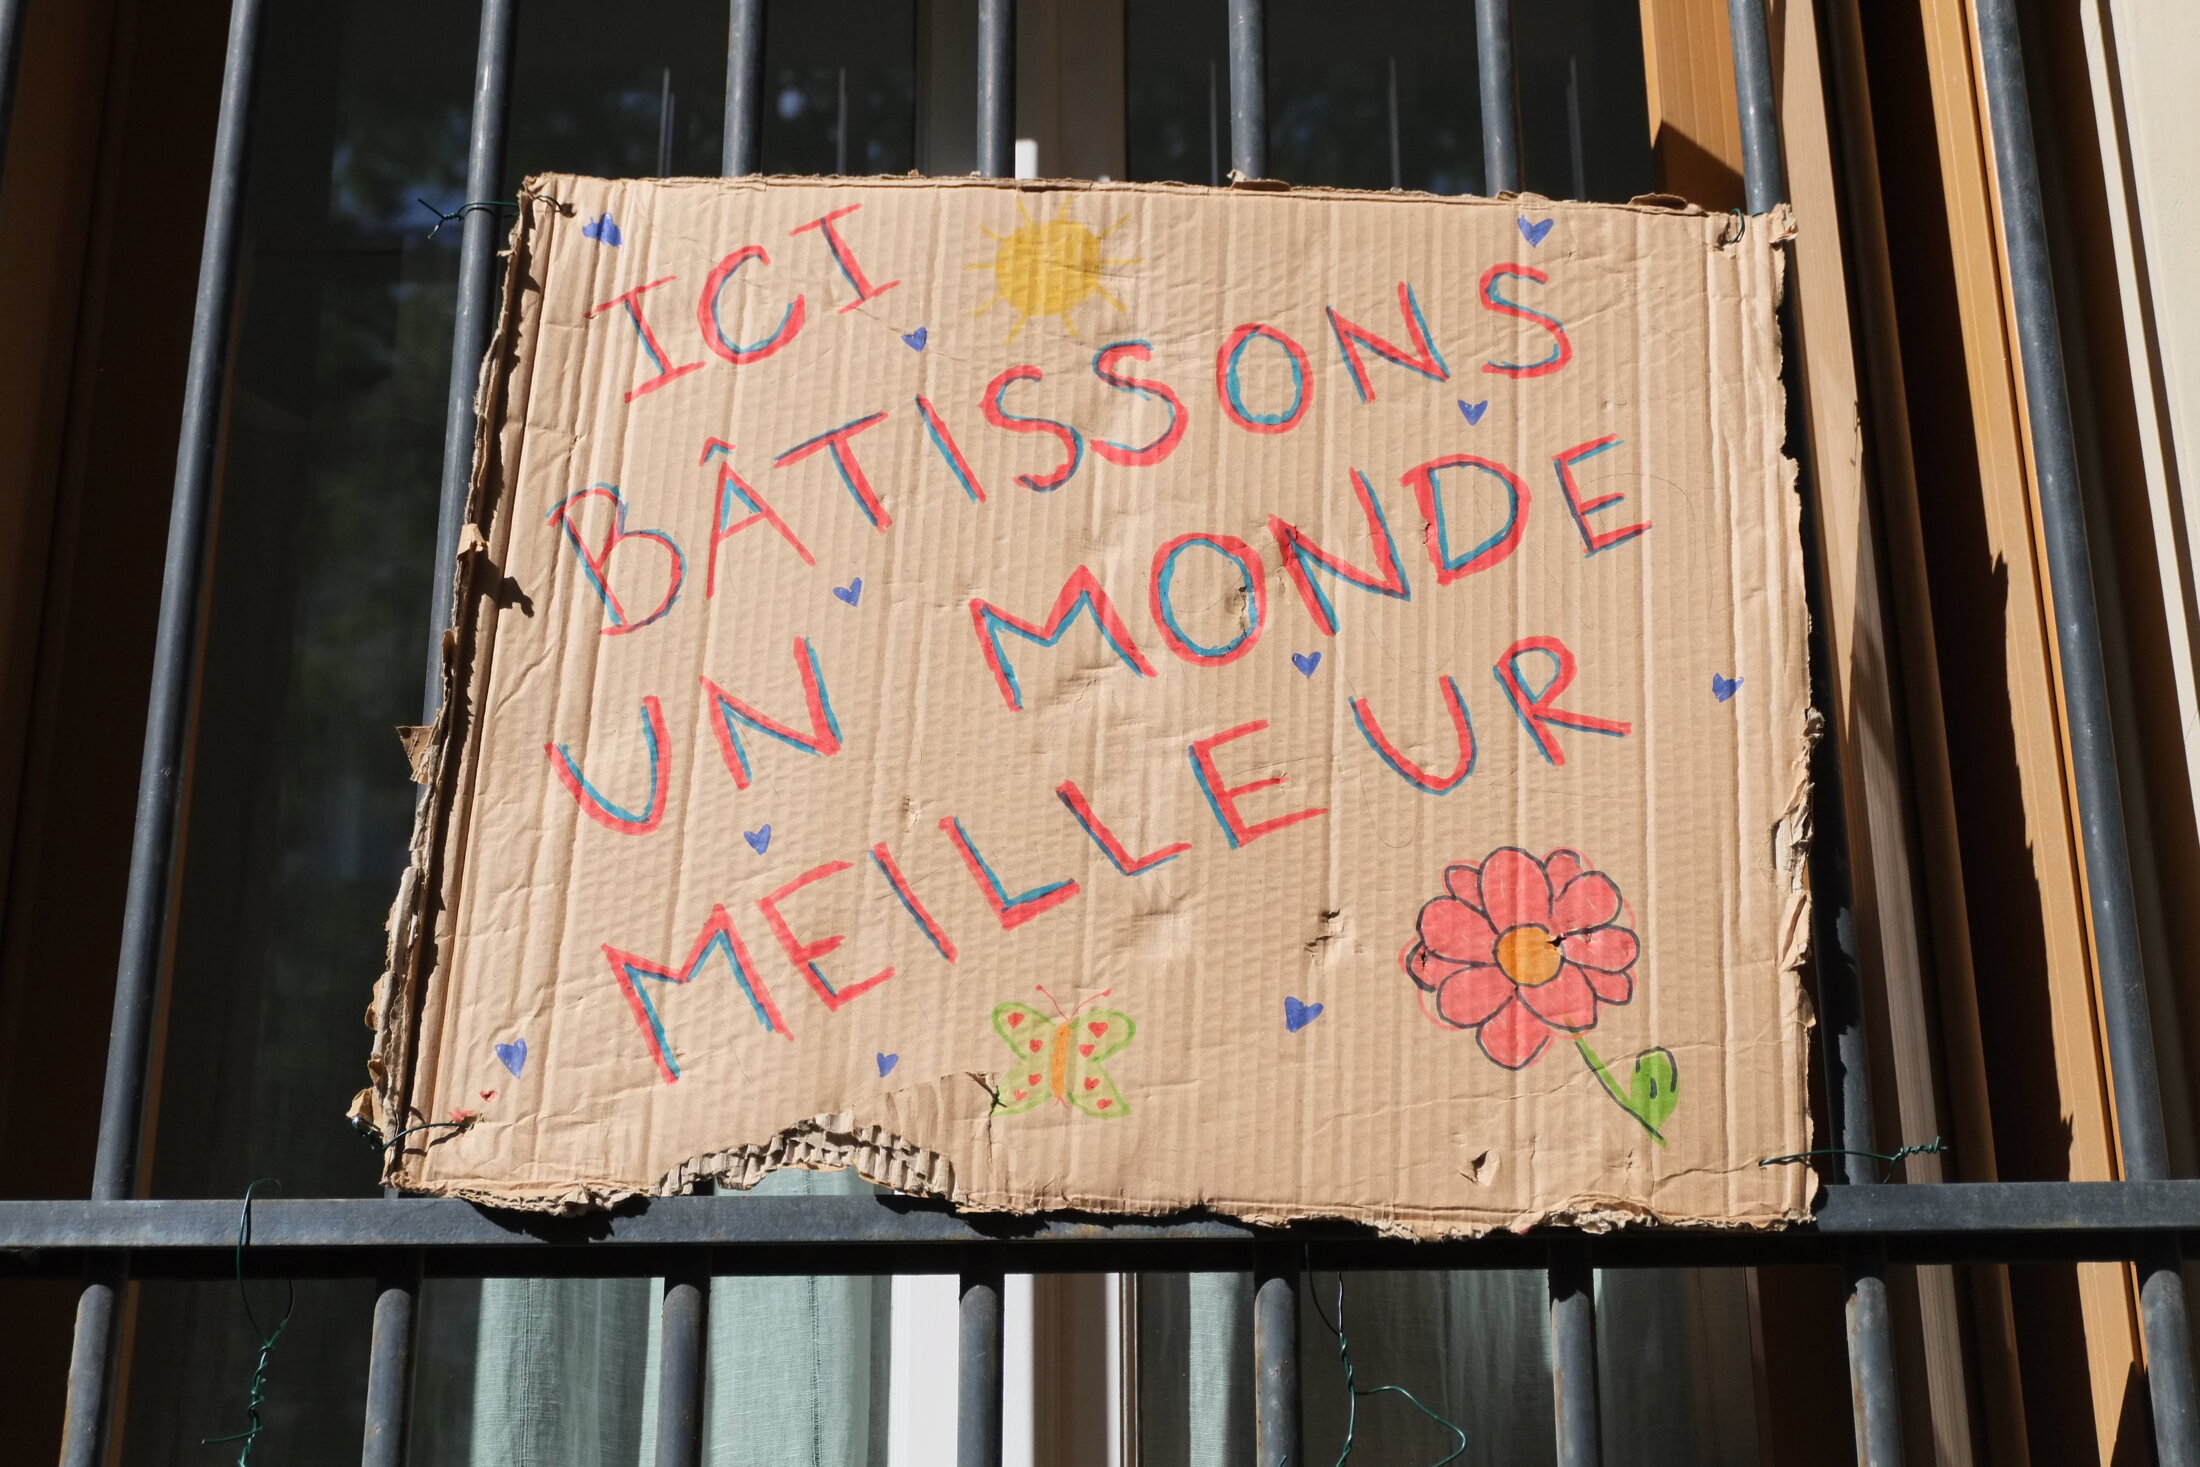 ICI
BÂTISSONS
UN MONDE
MEILLEUR